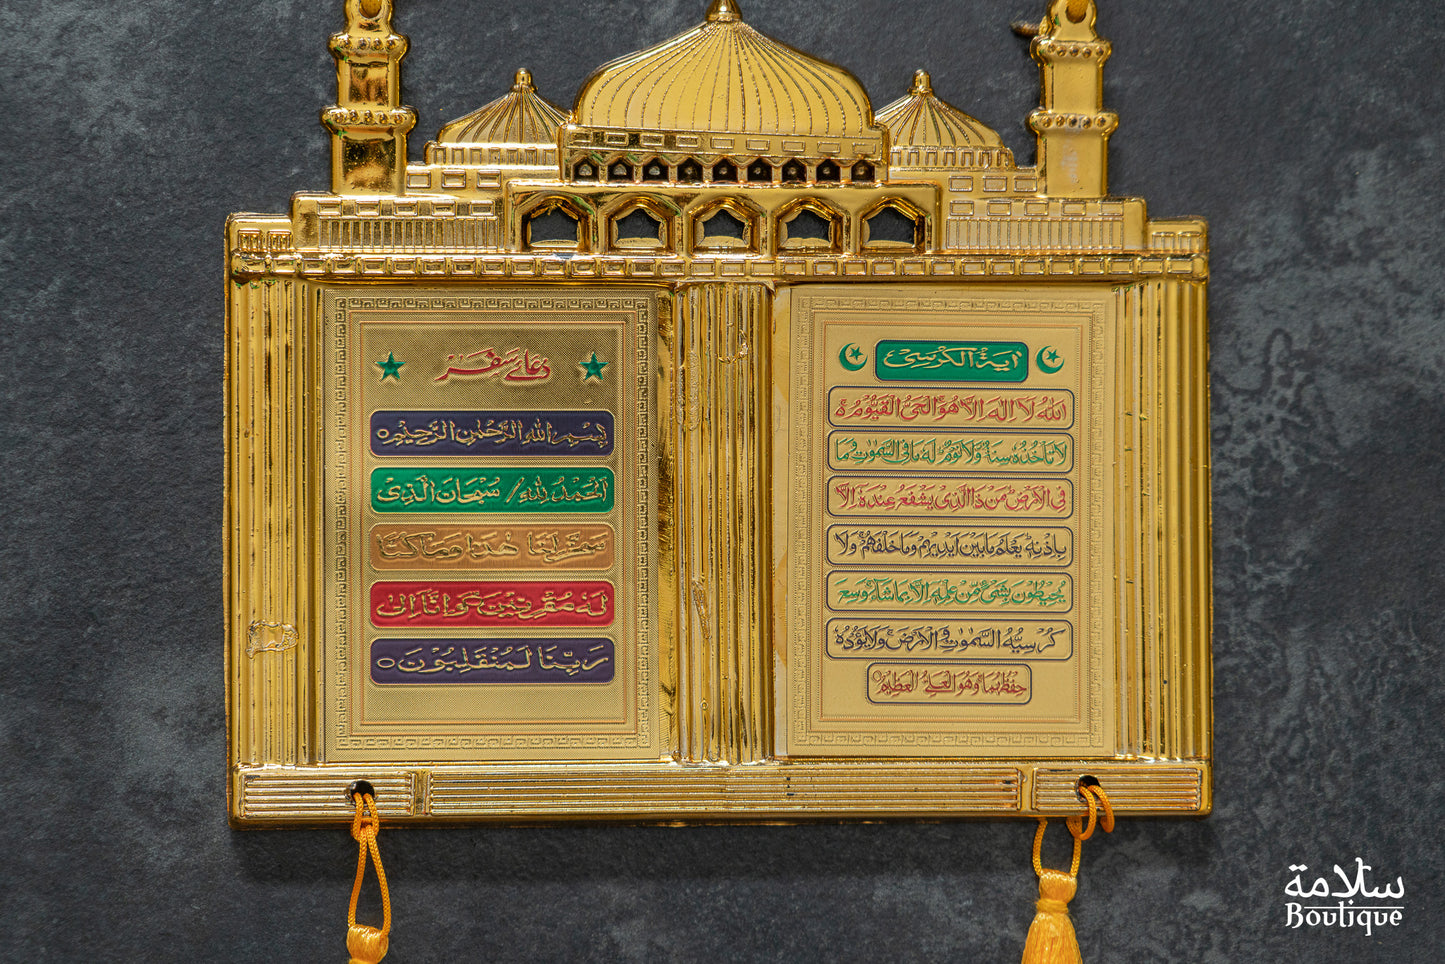 دعائے سفر
بِسْمِ اللهِ الرَّحْمٰنِ الرَّحِيْمِ ○
اَلْحَمْدُ لِلّٰهِ / سُبْحَانَ الَّذِىْ
سَخَّرَ لَنَا هٰذَا وَمَا كُنَّا
لَهٗ مُقْرِنِيْنَ وَاِنَّا اِلٰى
رَبِّنَا لَمُنْقَلِبُوْنَ ○
اٰيَةُ الْكُرْسِىْ
اَللهُ لَآ اِلٰهَ اِلَّا هُوَ الْحَىُّ الْقَيُّوْمُ ○
لَا تَاْخُذُهٗ سِنَةٌ وَّلَا نَوْمٌ لَهٗ مَا فِى السَّمٰوٰتِ وَمَا
فِى الْاَرْضِ مَنْ ذَا الَّذِىْ يَشْفَعُ عِنْدَهٗ اِلَّا
بِاِذْنِهٖ يَعْلَمُ مَا بَيْنَ اَيْدِيْهِمْ وَمَا خَلْفَهُمْ وَلَا
يُحِيْطُوْنَ بِشَىْءٍ مِّنْ عِلْمِهٖ اِلَّا بِمَا شَآءَ وَسِعَ
كُرْسِيُّهُ السَّمٰوٰتِ وَالْاَرْضَ وَلَا يَئُوْدُهٗ
حِفْظُهُمَا وَهُوَ الْعَلِىُّ الْعَظِيْمُ ○
سلامة
Boutique